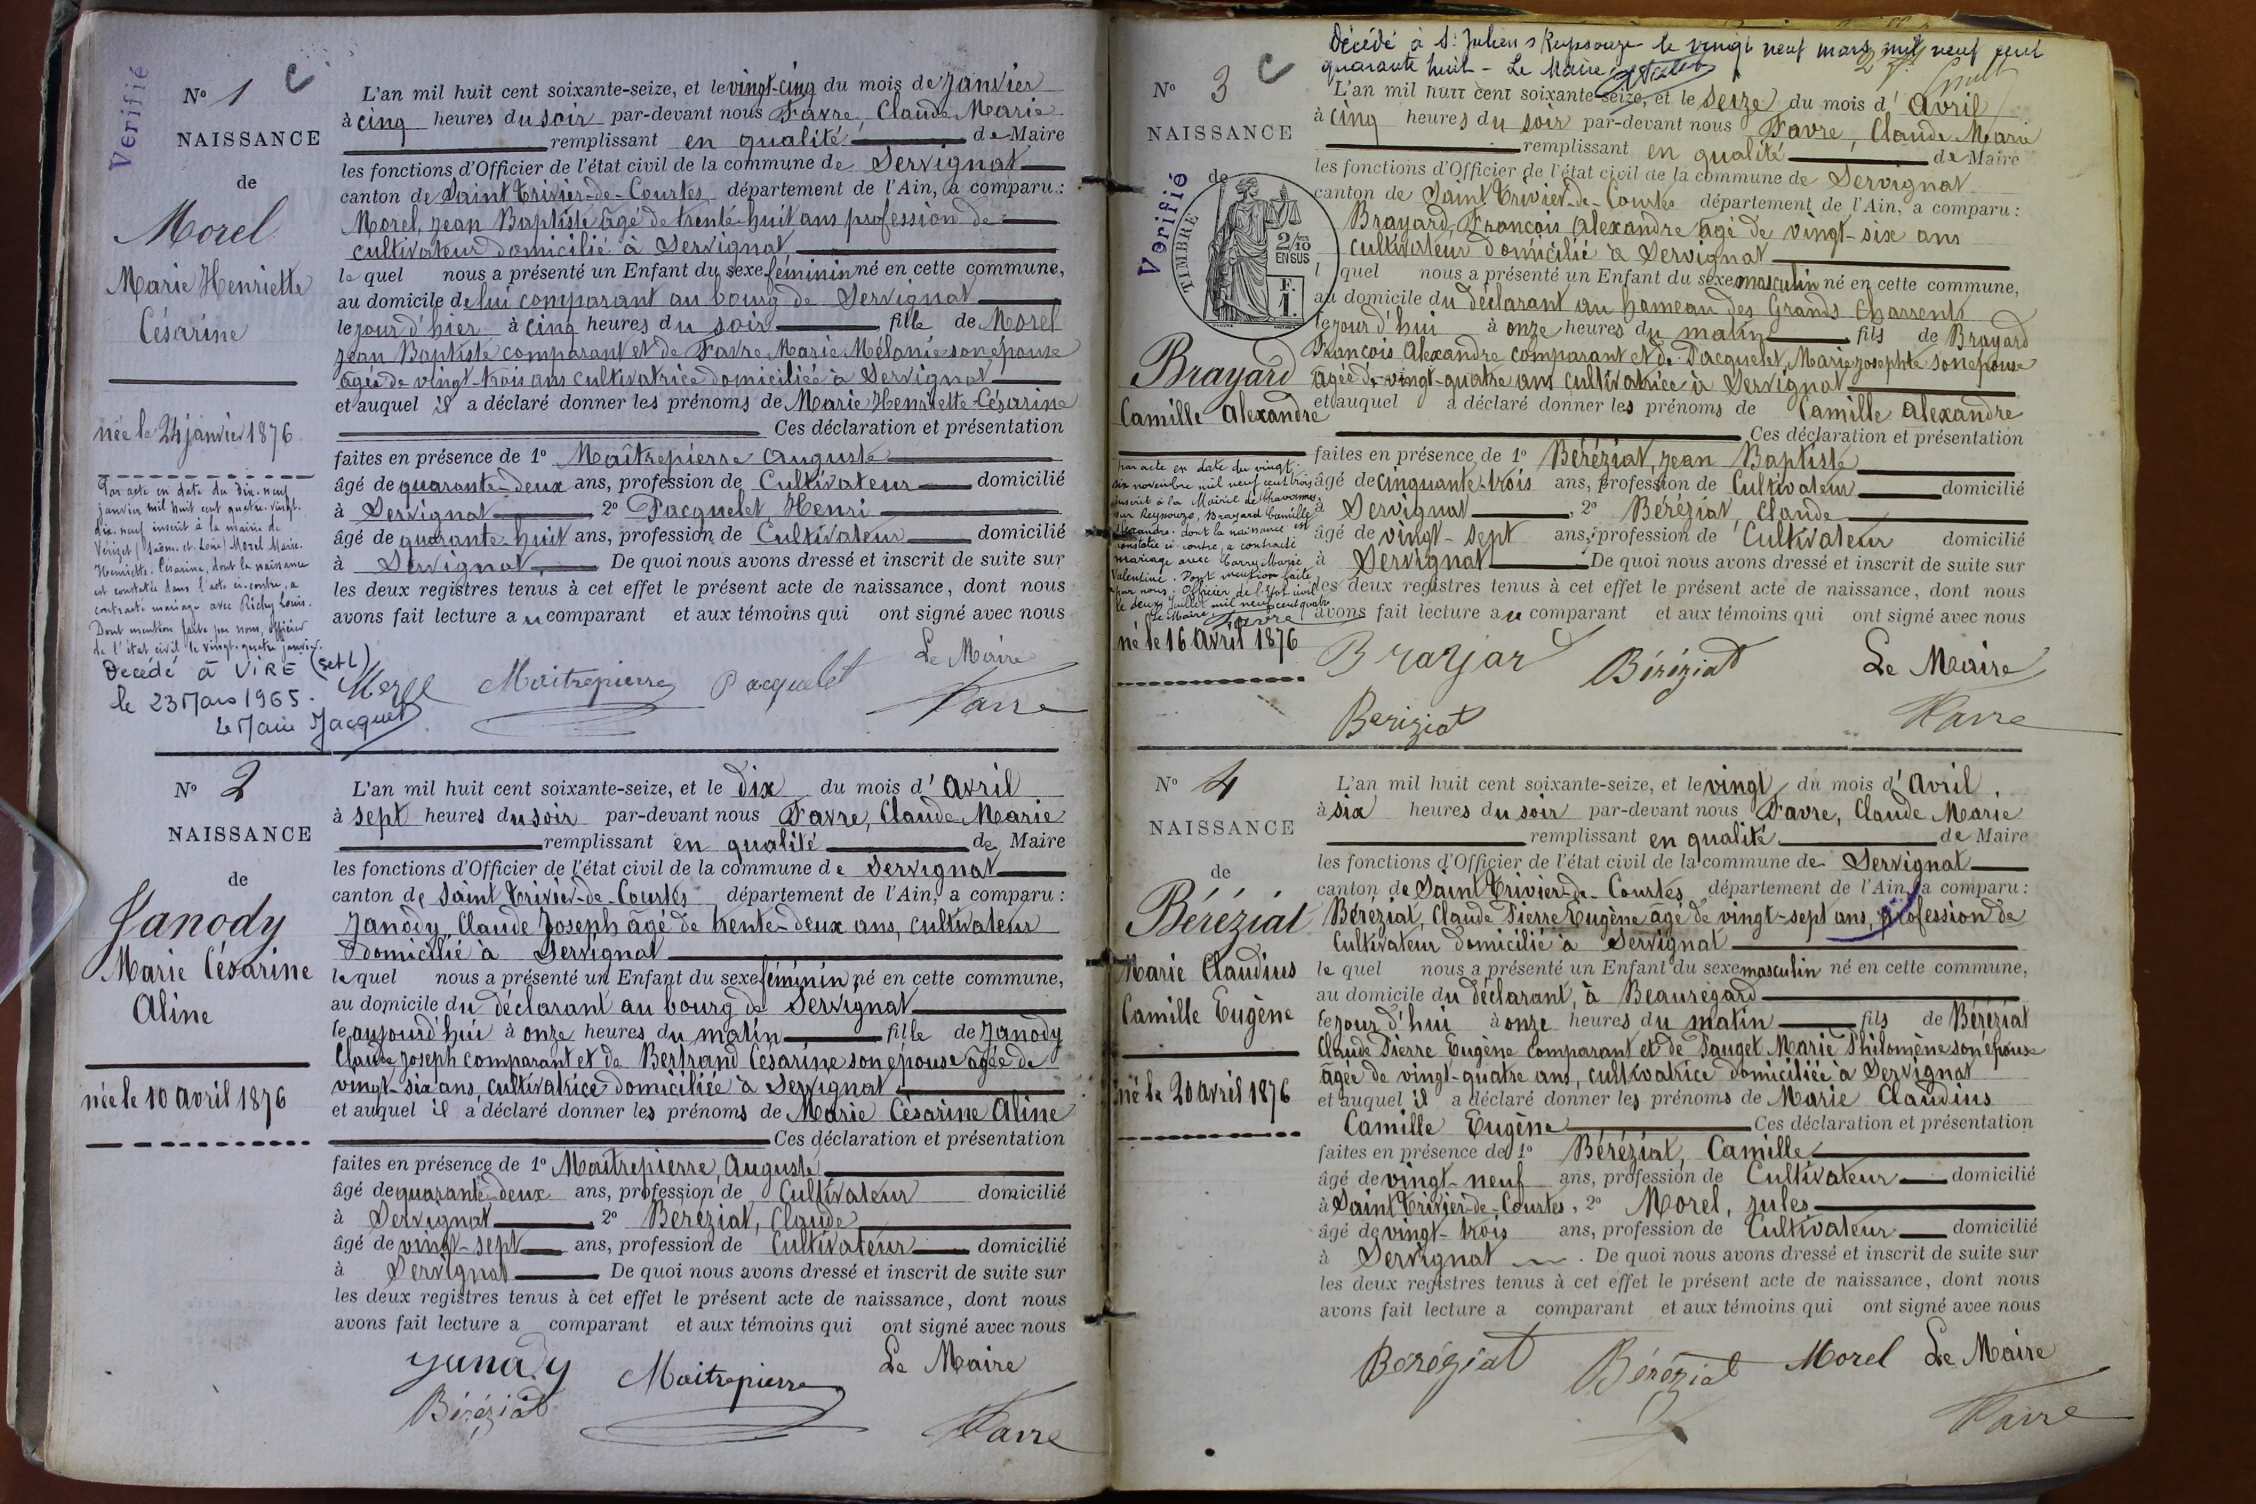 Verifié
N° 1
NAISSANCE
de
Morel
Marie Henriette
Césarine
née le 24 janvier 1876
Par acte en date du dix-neuf
janvier mil huit cent quatre-vingt-
dix-neuf inscrit à la mairie de
Vérizet (Saône-et-Loire) Morel Marie-
Henriette-Césarine, dont la naissance
est constatée dans l'acte ci-contre, a
contracté mariage avec Richy Louis.
Dont mention faite par nous, officier
de l'état civil le vingt-quatre janvier.
Décédé à VIRE (S et L)
le 23 Mars 1965.
Le Maire Jacquet
L'an mil huit cent soixante-seize, et le vingt-cinq du mois de Janvier
à cinq heures du soir par-devant nous Favre, Claude Marie
remplissant en qualité de Maire
les fonctions d'Officier de l'état civil de la commune de Servignat
canton de Saint Trivier-de-Courtes département de l'Ain, a comparu :
Morel, Jean Baptiste âgé de trente-huit ans profession de
cultivateur domicilié à Servignat
le quel nous a présenté un Enfant du sexe féminin né en cette commune,
au domicile de lui comparant au bourg de Servignat
le jour d'hier à cinq heures du soir fille de Morel
Jean Baptiste comparant et de Favre, Marie Mélanie son épouse
âgée de vingt-trois ans cultivatrice domiciliée à Servignat
et auquel il a déclaré donner les prénoms de Marie Henriette Césarine
Ces déclaration et présentation
faites en présence de 1° Maîtrepierre Auguste
âgé de quarante-deux ans, profession de Cultivateur domicilié
à Servignat 2° Pacquelet Henri
âgé de quarante-huit ans, profession de Cultivateur domicilié
à Servignat, De quoi nous avons dressé et inscrit de suite sur
les deux registres tenus à cet effet le présent acte de naissance, dont nous
avons fait lecture au comparant et aux témoins qui ont signé avec nous
Le Maire
Maitrepierre Pacquelet Favre
N° 2
NAISSANCE
de
Janody
Marie Césarine
Aline
née le 10 avril 1876
L'an mil huit cent soixante-seize, et le dix du mois d'avril
à sept heures du soir par-devant nous Favre, Claude Marie
remplissant en qualité de Maire
les fonctions d'Officier de l'état civil de la commune de Servignat
canton de Saint Trivier-de-Courtes département de l'Ain, a comparu :
Janody, Claude Joseph âgé de trente-deux ans, cultivateur
domicilié à Servignat
le quel nous a présenté un Enfant du sexe féminin né en cette commune,
au domicile du déclarant au bourg de Servignat
le aujourd'hui à onze heures du matin fille de Janody
Claude Joseph comparant et de Bertrand Césarine son épouse âgée de
vingt-six ans, cultivatrice domiciliée à Servignat
et auquel il a déclaré donner les prénoms de Marie Césarine Aline
Ces déclaration et présentation
faites en présence de 1° Maîtrepierre, Auguste
âgé de quarante-deux ans, profession de Cultivateur domicilié
à Servignat, 2° Béréziat, Claude
âgé de vingt-sept ans, profession de Cultivateur domicilié
à Servignat De quoi nous avons dressé et inscrit de suite sur
les deux registres tenus à cet effet le présent acte de naissance, dont nous
avons fait lecture a comparant et aux témoins qui ont signé avec nous
Janody Maitrepierre Le Maire
Béréziat Favre
Décédé à St Julien s Reyssouze le vingt neuf mars mil neuf cent
quarante huit - Le Maire
N° 3
NAISSANCE
de
Verifié
TIMBRE
2/10
EN SUS
F.
1.
Brayard
Camille Alexandre
par acte en date du vingt-
six novembre mil neuf cent trois
inscrit à la Mairie de Chavannes-
sur Reyssouze, Brayard Camille
Alexandre dont la naissance est
constatée ci-contre, a contracté
mariage avec Carry Marie
Valentine. Dont mention faite
par nous, Officier de l'Etat civil
le deux juillet mil neuf cent quatre
Le Maire Favre
né le 16 avril 1876
L'an mil huit cent soixante-seize, et le seize du mois d'Avril
à cinq heures du soir par-devant nous Favre, Claude Marie
remplissant en qualité de Maire
les fonctions d'Officier de l'état civil de la commune de Servignat
canton de Saint Trivier-de-Courtes département de l'Ain, a comparu :
Brayard, François Alexandre âgé de vingt-six ans
cultivateur domicilié à Servignat
l quel nous a présenté un Enfant du sexe masculin né en cette commune,
au domicile du déclarant au hameau des Grands Charrents
le jour d'hui à onze heures du matin fils de Brayard
François Alexandre comparant et de Pacquelet, Marie Josephte son épouse
âgée de vingt-quatre ans cultivatrice à Servignat
et auquel a déclaré donner les prénoms de Camille Alexandre
Ces déclaration et présentation
faites en présence de 1° Béréziat, Jean Baptiste
âgé de cinquante-trois ans, profession de Cultivateur domicilié
à Servignat, 2° Béréziat, Claude
âgé de vingt-sept ans, profession de Cultivateur domicilié
à Servignat De quoi nous avons dressé et inscrit de suite sur
les deux registres tenus à cet effet le présent acte de naissance, dont nous
avons fait lecture au comparant et aux témoins qui ont signé avec nous
Brayard Béréziat Le Maire
Bereziat Favre
N° 4
NAISSANCE
de
Béréziat
Marie Claudius
Camille Eugène
né le 20 avril 1876
L'an mil huit cent soixante-seize, et le vingt du mois d'Avril,
à six heures du soir par-devant nous Favre, Claude Marie
remplissant en qualité de Maire
les fonctions d'Officier de l'état civil de la commune de Servignat
canton de Saint Trivier-de-Courtes département de l'Ain, a comparu :
Béréziat, Claude Pierre Eugène âgé de vingt-sept ans, profession de
Cultivateur domicilié à Servignat
le quel nous a présenté un Enfant du sexe masculin né en cette commune,
au domicile du déclarant, à Beauregard
le jour d'hui à onze heures du matin fils de Béréziat
Claude Pierre Eugène comparant et de Pauget Marie Philomène son épouse
âgée de vingt-quatre ans, cultivatrice domiciliée à Servignat
et auquel il a déclaré donner les prénoms de Marie Claudius
Camille Eugène Ces déclaration et présentation
faites en présence de 1° Béréziat, Camille
âgé de vingt-neuf ans, profession de Cultivateur domicilié
à Saint Trivier-de-Courtes, 2° Morel, Jules
âgé de vingt-trois ans, profession de Cultivateur domicilié
à Servignat. De quoi nous avons dressé et inscrit de suite sur
les deux registres tenus à cet effet le présent acte de naissance, dont nous
avons fait lecture a comparant et aux témoins qui ont signé avec nous
Béréziat Béréziat Morel Le Maire
Favre